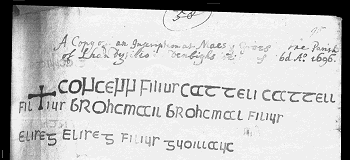 58
A Copy of an Inscription at Maes y Groes Parish
of Lhandysilio Denbighs Aº. 1696.
+ concenn Filiur cattell cattell
Filiur brohcmail brohcmal Filiur
Eliseg Eliseg Filiur guoillauc